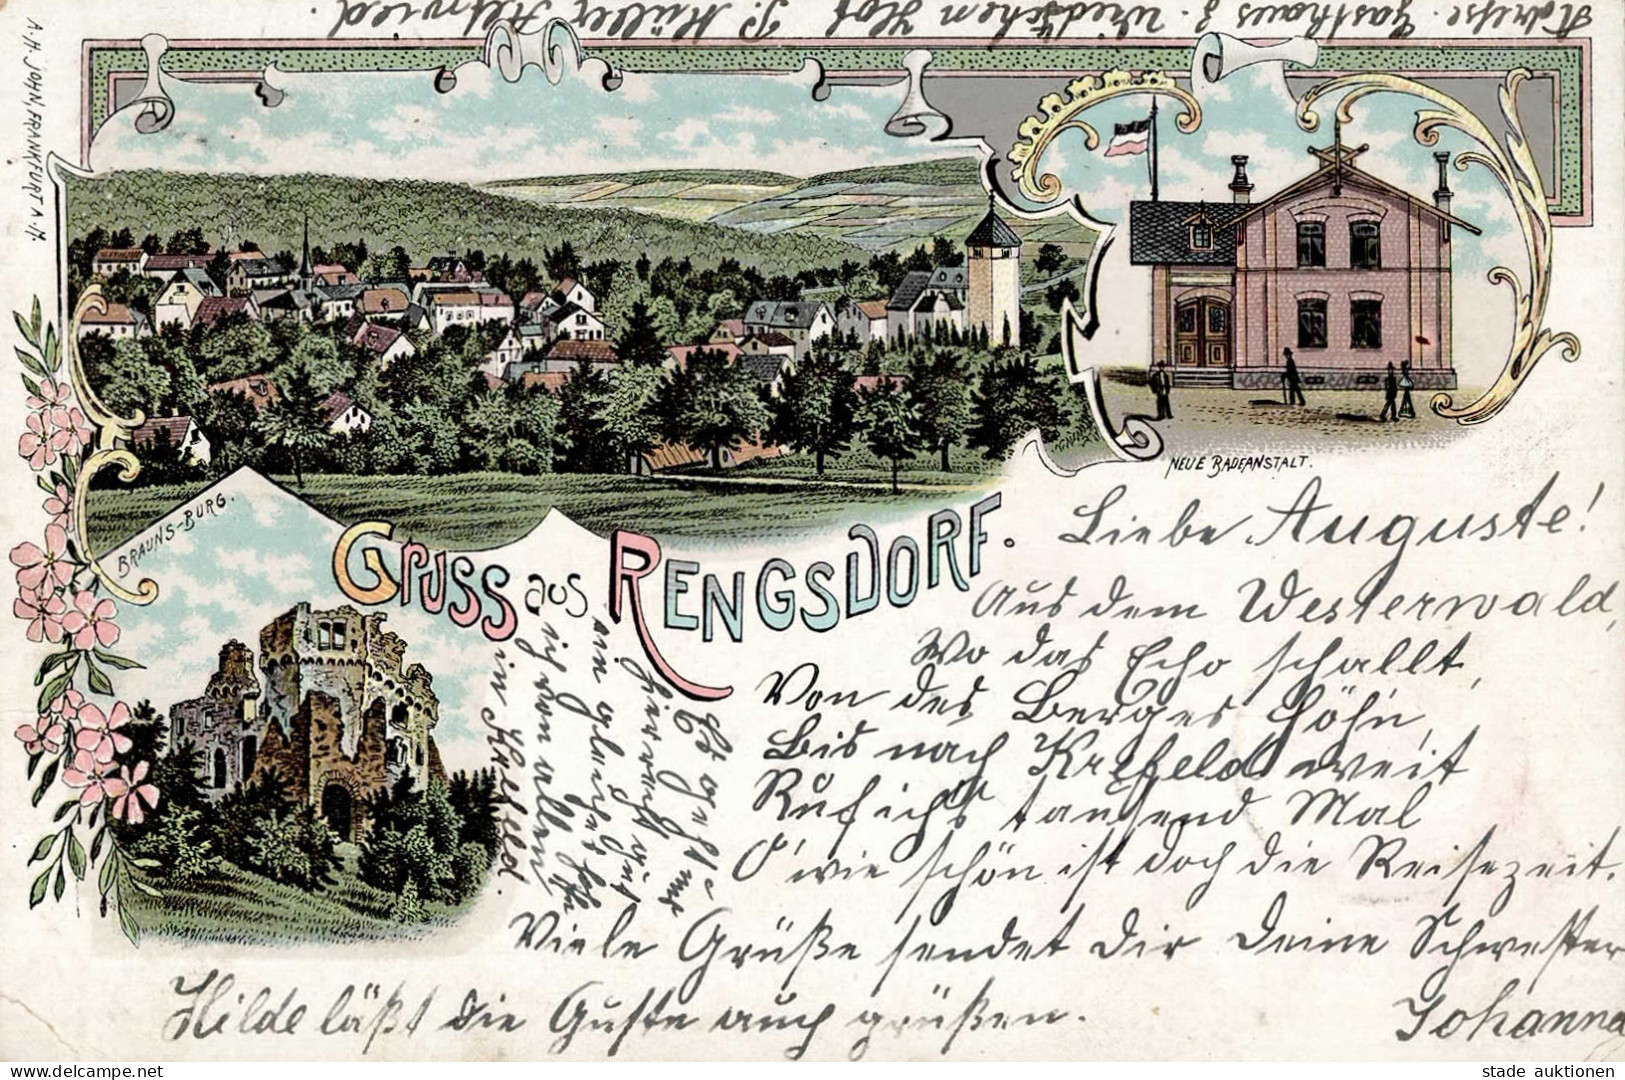 Adresse. Gasthaus z. Wiedschen Hof P. Müller Altwied.
A. H. JOHN, FRANKFURT A. M.
NEUE BADEANSTALT.
BRAUNS-BURG.
GRUSS aus RENGSDORF.
Liebe Auguste!
Aus dem Westerwald,
Wo das Echo schallt,
Von des Berges Höhn,
Bis nach Krefeld weit
Ruf ich's tausend Mal
O' wie schön ist doch die Reisezeit.
Viele Grüße sendet Dir Deine Schwester
Johanna
Hilde läßt die Guste auch grüßen.
Es geht uns
hier recht gut
ein
ich von allen
in Krefeld.
delcampe.net
stade auktionen